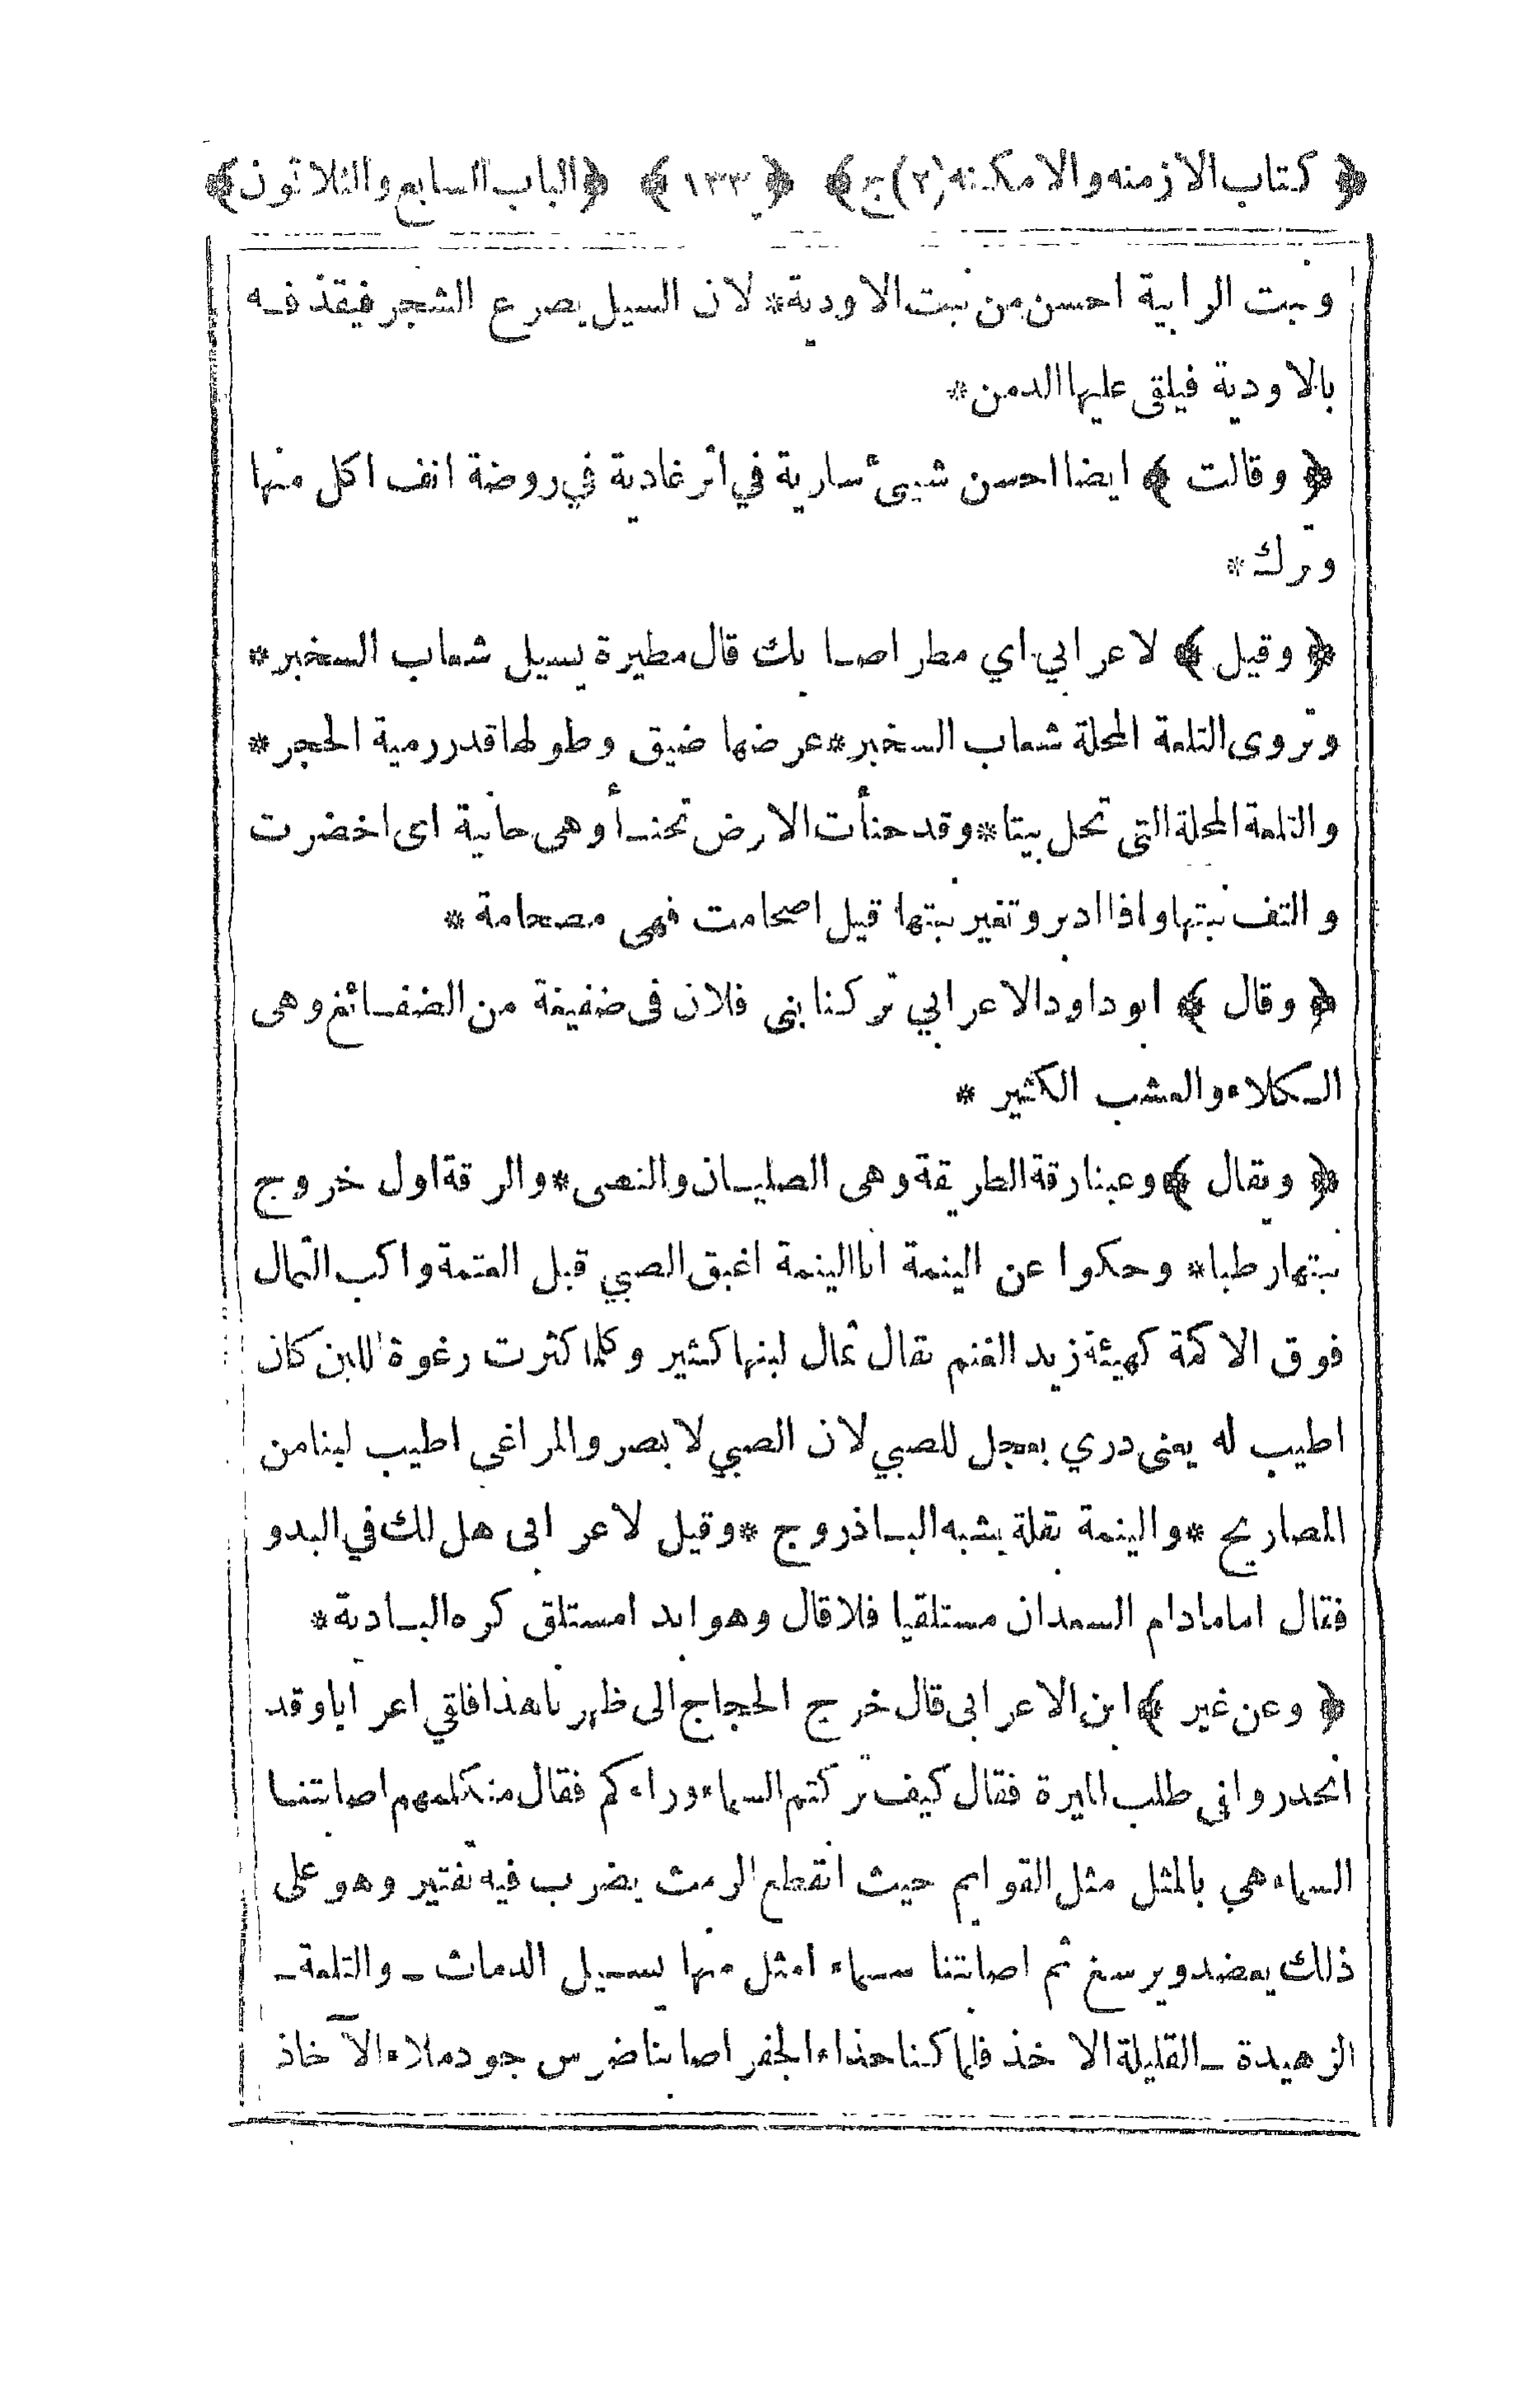 ﴿ كتاب الازمنه والامكنه (٢) ج ﴾ ﴿ ١٣٣ ﴾ ﴿ الباب السابع والثلاثون ﴾
ونبت الرابية احسن من نبت الاودية * لان السيل يصرع الشجر فيقذفـه
بالاودية فيلقى عليها الدمن *
﴿ وقالت ﴾ ايضا احسن شيئ سارية في اثر غادية في روضة انف اكل منها
وترك *
﴿ وقيل ﴾ لاعرابي اي مطر اصـابك قال مطيرة يسيل شعاب السخبر *
وتروى التلعة المحلة شعاب السخبر * عرضها ضيق وطولها قدر رمية الحجر *
والتلعة المحلة التى تحل بيتا * وقد حنأت الارض تحنـأ وهى حانية اى اخضرت
والتف نبتها واذا ادبر وتغير نبتها قيل اصحامت فهى مصحامة *
﴿ وقال ﴾ ابوداود الاعرابي تركنا بنى فلان فى ضفيفة من الضفـائغ وهى
الـكلاء والعشب الكثير *
﴿ ويقال ﴾ وعبنا رقة الطريقة وهى الصليـان والنصى * والرقة اول خروج
نبتها رطبا * وحكوا عن الينمة انا الينمة اغبق الصبي قبل العتمة واكب الثمال
فوق الاكمة كهيئة زبد الغنم يقال ثمال لبنها كثير وكلما كثرت رغوة اللبن كان
اطيب له يعنى درى يعجل للصبي لان الصبي لا يصبر والمراغى اطيب لبنا من
المصاريح * والينمة بقلة يشبه البـاذروج * وقيل لاعرابى هل لك في البدو
فقال اما مادام السعدان مستلقيا فلا قال وهو ابدا مستلق كره البـادية *
﴿ وعن غير ﴾ ابن الاعرابى قال خرج الحجاج الى ظهرنا هذا فلقي اعرابا وقد
انحدروا في طلب الميرة فقال كيف تركتم السماء وراءكم فقال متكلمهم اصابتنـا
السماء هي بالمثل مثل القوايم حيث انقطع الرمث يضرب فيه تفتير وهو على
ذلك يعضد ويرسغ ثم اصابتنا سماء امثل منها يسـيل الدماث ـ والتلعة ـ
الزهيدة ـ القليلة الاخذ فلما كنا حذاء الجفر اصابنا ضرس جود ملاء الآخاذ